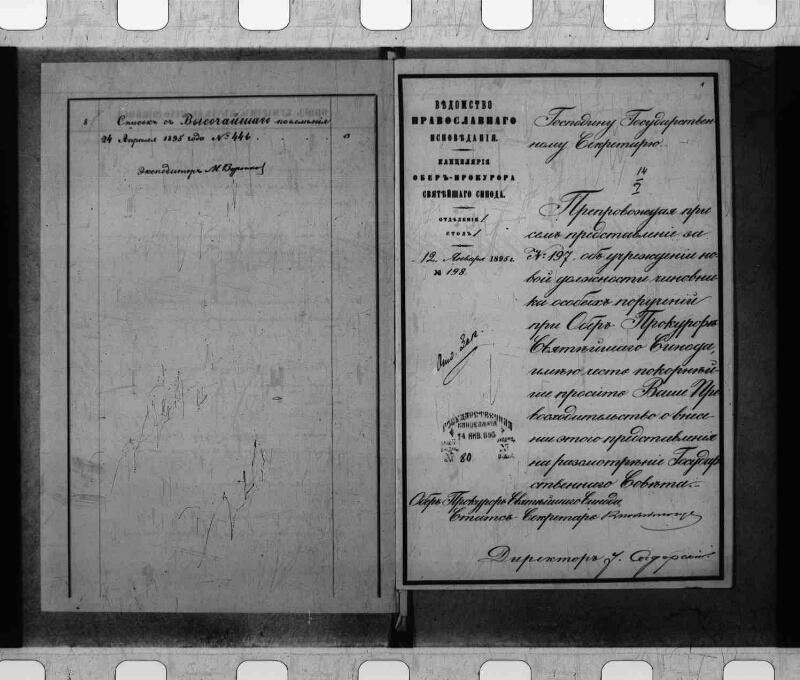 8 Списокъ съ Высочайшаго повелѣнія
24 Апрѣля 1895 года № 446 13
Экспедиторъ М.
ВѢДОМСТВО
ПРАВОСЛАВНАГО
ИСПОВѢДАНІЯ.
КАНЦЕЛЯРІЯ
ОБЕРЪ-ПРОКУРОРА
СВЯТѢЙШАГО СИНОДА.
ОТДѢЛЕНІЕ I
СТОЛЪ I
12 Января 1895 г.
№ 198.
Отд. Зак.
ГОСУДАРСТВЕННАЯ
КАНЦЕЛЯРІЯ
14 ЯНВ. 1895
№ 80
Господину Государствен-
ному Секретарю.
14
I
Препровождая при
семъ представленіе за
№ 197. объ учрежденіи но-
вой должности чиновни-
ка особыхъ порученій
при Оберъ-Прокурорѣ
Святѣйшаго Синода,
имѣю честь покорнѣй-
ше просить Ваше Пре-
восходительство о внесе-
ніи этого представленія
на разсмотрѣніе Государ-
ственнаго Совѣта.
Оберъ-Прокуроръ Святѣйшаго Синода,
Статсъ-Секретарь
Директоръ